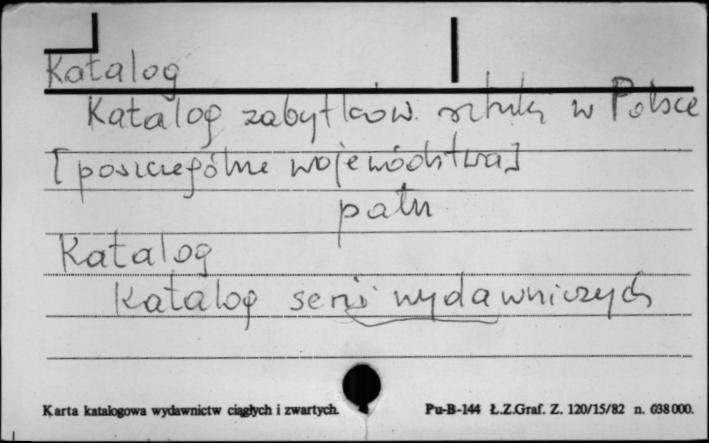 Katalog
Katalog zabytków sztuki w Polsce
[poszczególne województwa]
patrz
Katalog
Katalog serii wydawniczych
Karta katalogowa wydawnictw ciągłych i zwartych. Pu-B-144 Ł.Z.Graf. Z. 120/15/82 n. 638000.